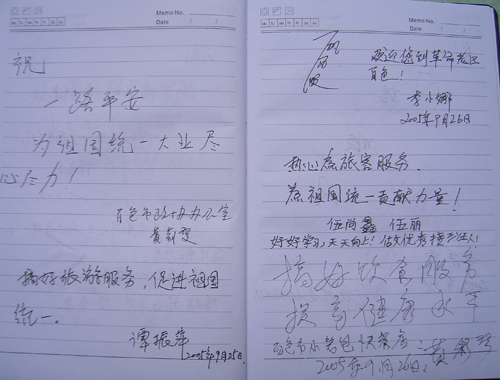 Memo No.
Date / /
祝
一路平安
为祖国统一大业尽
心尽力！
百色市政协办公室
搞好旅游服务，促进祖国
统一。
谭振华
2005年9月25日
Memo No.
Date / /
欢迎您到革命老区
百色！
李小娜
2005年9月26日
热心为旅客服务.
为祖国统一贡献力量！
伍尚鑫 伍丽
好好学习，天天向上！做优秀接班人！
搞好饮食服务
提高健康水平
2005年9月26日